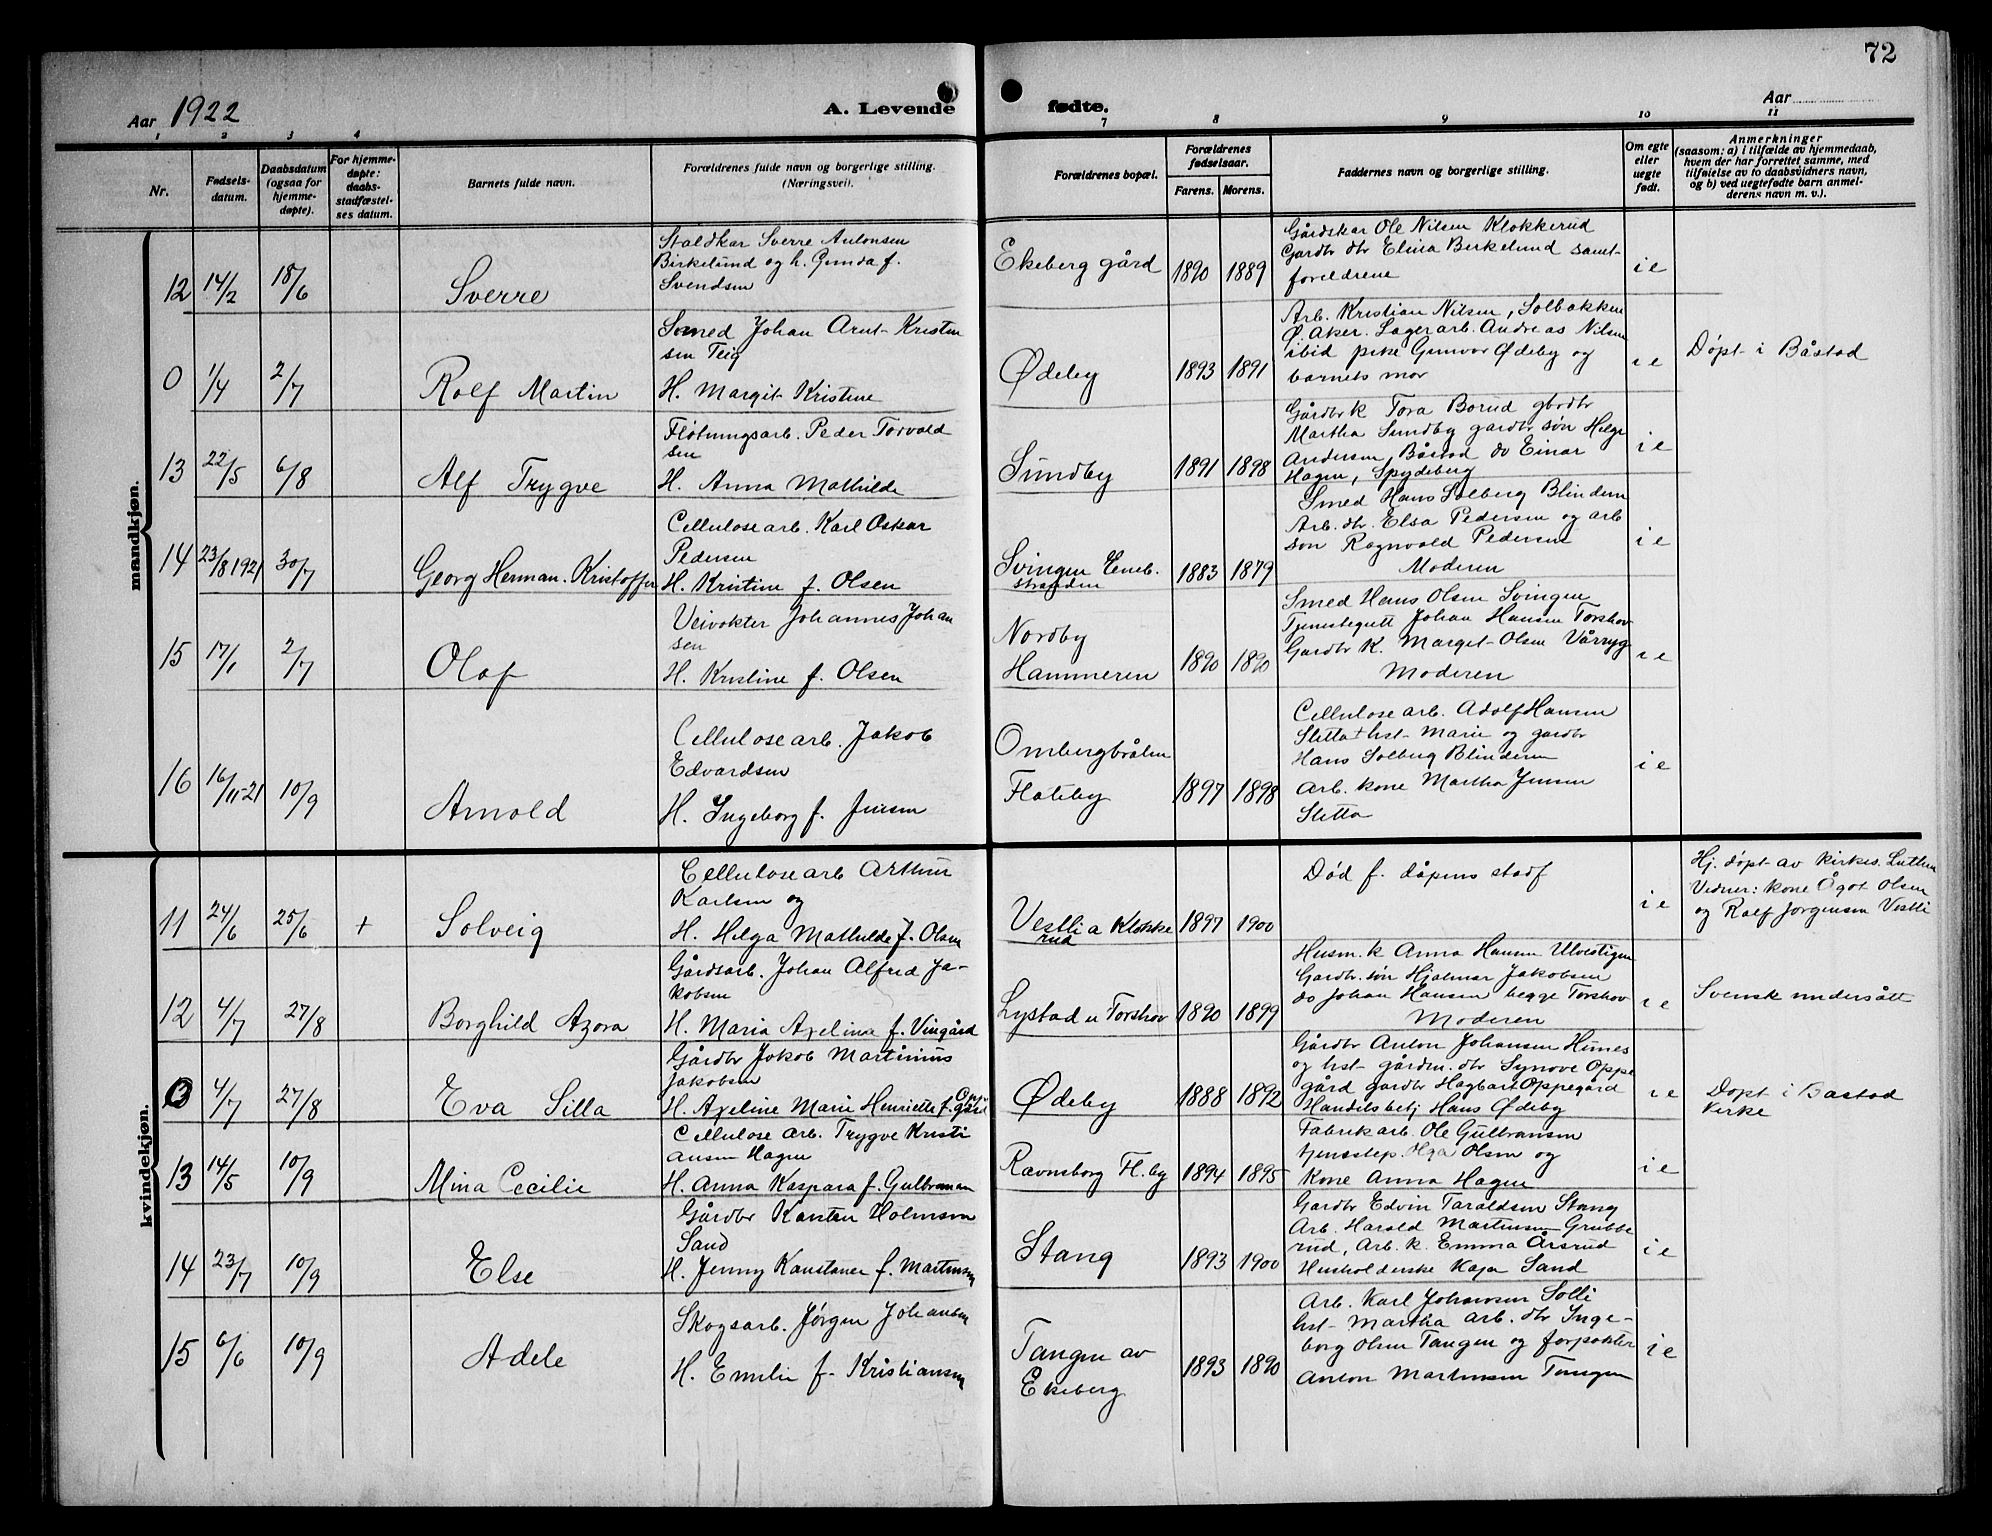 72
Aar 1922
A. Levende
fødte.
Aar
1 2 3 4
7 8 9 10 11
Nr.
Fødsels-
datum.
Daabsdatum
(ogsaa for
hjemme-
døpte).
For hjemme-
døpte:
daabs-
stadfæstel-
ses datum.
Barnets fulde navn.
Forældrenes fulde navn og borgerlige stilling.
(Næringsvei).
Forældrenes bopæl.
Forældrenes
fødselsaar.
Farens. Morens.
Faddernes navn og borgerlige stilling.
Om egte
eller
uegte
født.
Anmerkninger
(saasom: a) i tilfælde av hjemmedaab,
hvem der har forrettet samme, med
tilføielse av to daabsvidners navn,
og b) ved uegtefødte barn anmel-
derens navn m. v.).
mandkjøn.
12 14/2 18/6
Sverre
Staldkar Sverre Antonsen
Birkelund og h. Gunda f.
Svendsen
Ekeberg gård
1890 1889
Gårdskar Ole Nilsen Klokkerud
Gardbr dtr Elina Birkelund samt
foreldrene
i e
0 1/4 2/7
Rolf Martin
Smed Johan Arnt Kristen
sen Teig
H. Margit Kristine
Ødeby
1893 1891
Arb. Kristian Nilsen, Solbakken
Ø. Aker. Lagerarb. Andreas Nilsen
ibid pike Gunvor Ødeby og
barnets mor
i e
Døpt i Båstad
13 22/5 6/8
Alf Trygve
Fløtningsarb. Peder Torvald
sen
H. Anna Mathilde
Sundby
1891 1898
Gårdbr k Tora Borud gbrdtr
Martha Sundby gardbr søn Helge
Andersen Båstad do Einar
Hagen, Spydeberg
i e
14 23/8 1921 30/7
Georg Herman Kristoffer
Cellulosearb. Karl Oskar
Pedersen
H. Kristine f. Olsen
Svingen Eneb.
stranden
1883 1879
Smed Hans Solberg Blindern
Arb. dtr. Elsa Pedersen og arb
søn Ragnvald Pedersen
Moderen
i e
15 17/1 2/7
Olaf
Veivokter Johannes Johan
sen
H. Kristine f. Olsen
Nordby
Hammeren
1890 1890
Smed Hans Olsen Svingen
Tjenestegutt Johan Hansen Torshov
Gardbr K. Margit Olsen Vårryg
Moderen
i e
16 16/11-21 10/9
Arnold
Cellulosearb. Jakob
Edvardsen
H. Ingeborg f. Jensen
Ombergbråten
Flateby
1897 1898
Cellulosearb. Adolf Hansen
Sletta hst Marie og gardbr
Hans Solberg Blindern
Arb. kone Martha Jensen
Sletta
i e
kvindekjøn.
11 24/6 25/6 +
Solveig
Cellulosearb Arthur
Karlsen og
H. Helga Mathilde f. Olsen
Vestli a Klokke
rud
1897 1900
Død f. dåpens stadf
i e
Hj. døpt av kirkes. Luthen
Vidner: kone Ågot Olsen
og Rolf Jørgensen Vestli
12 4/7 27/8
Borghild Azora
Gårdsarb. Johan Alfred Ja-
kobsen
H. Maria Axelina f. Vingård
Lystad u Torshov
1890 1899
Husm. k Anna Hansen Ulvestigen
Gardbr. søn Hjalmar Jakobsen
do Johan Hansen begge Torshov
Moderen
i e
Svensk undersått
0 4/7 27/8
Eva Silla
Gårdbr Jakob Martinius
Jakobsen
H. Axeline Marie Henriette f. Oppe
gård
Ødeby
1888 1892
Gårdbr Anton Johansen Humes
og hst gården. dtr Synove Oppe
gård gardbr Hagbart Oppegård
Handelsbetj Hans Ødeby
i e
Døpt i Båstad
Kirke
13 14/5 10/9
Mina Cecilie
Cellulose arb. Trygve Kristi
ansen Hagen
H. Anna Kaspara f. Gulbransen
Ravnsborg Fl.by
1894 1895
Fabrikarb. Ole Gulbransen
tjenestep. Olga Olsen og
kone Anna Hagen
i e
14 23/7 10/9
Else
Gårdbr Karsten Holmsen
Sand
H. Jenny Konstance f. Martinsen
Stang
1893 1900
Gardbr Edvin Taraldsen Stang
Arb. Harald Martinsen Grubbe
rud, Arb. k. Emma Årsrud
Husholderske Kaja Sand
i e
15 6/6 10/9
Adele
Skogsarb. Jørgen Johansen
H. Emilie f. Kristiansen
Tangen av
Ekeberg
1893 1890
Arb. Karl Johansen Solli
hst Martha arb. dtr Inge-
borg Olsen Tangen og forpakter
Anton Martinsen Tangen
i e